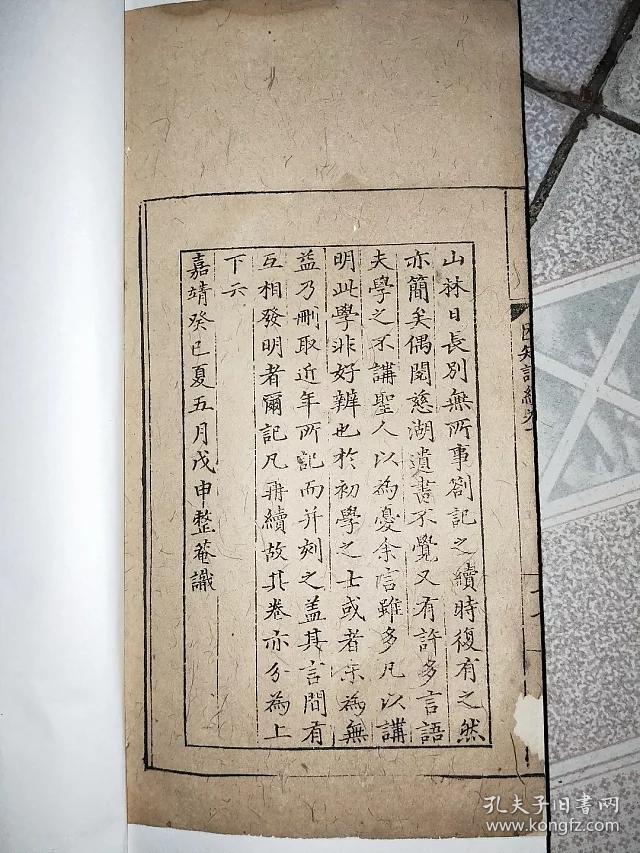 山林日長別無所事劄記之續時復有之然
亦簡矣偶閱慈湖遺書不覺又有許多言語
夫學之不講聖人以為憂余言雖多凡以講
明此學非好辨也於初學之士或者不為無
益乃刪取近年所記而并刻之蓋其言間有
互相發明者爾記凡再續故其卷亦分為上
下云
嘉靖癸巳夏五月戊申整菴識
困知記續卷
孔夫子旧书网
www.kongfz.com